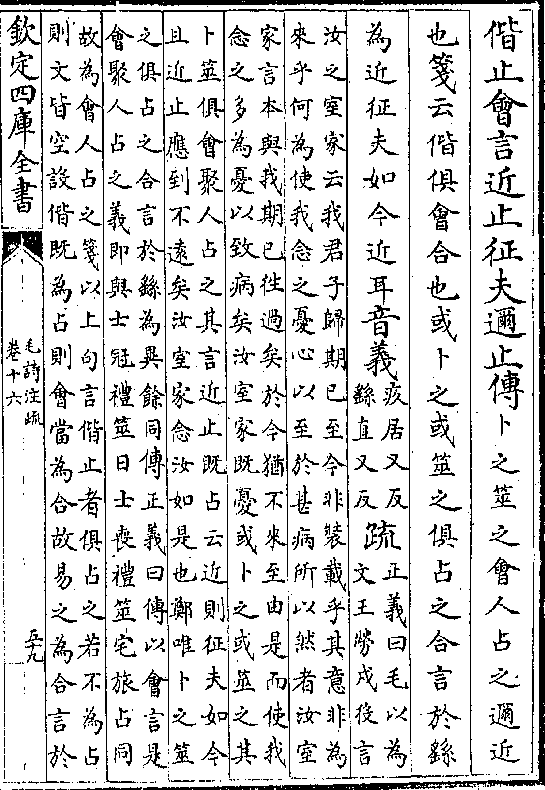 偕止會言近止征夫邇止傳卜之筮之會人占之邇近
也箋云偕俱會合也或卜之或筮之俱占之合言於繇
為近征夫如今近耳音義
疚居又反
繇直又反
疏
正義曰毛以為
文王勞戍役言
汝之室家云我君子歸期已至今非裝載乎其意非為
來乎何為使我念之憂心以至於甚病所以然者汝室
家言本與我期已往過矣於今猶不來至由是而使我
念之多為憂以致病矣汝室家既憂或卜之或筮之其
卜筮俱會聚人占之其言近止既占云近則征夫如今
且近止應到不遠矣汝室家念汝如是也鄭唯卜之筮
之俱占之合言於繇為異餘同傳正義曰傳以會言是
會聚人占之義即與士冠禮筮日士喪禮筮宅旅占同
故為會人占之箋以上句言偕止者俱占之若不為占
則文皆空設偕既為占則會當為合故易之為合言於
欽定四庫全書
毛詩注疏
卷十六
五十九